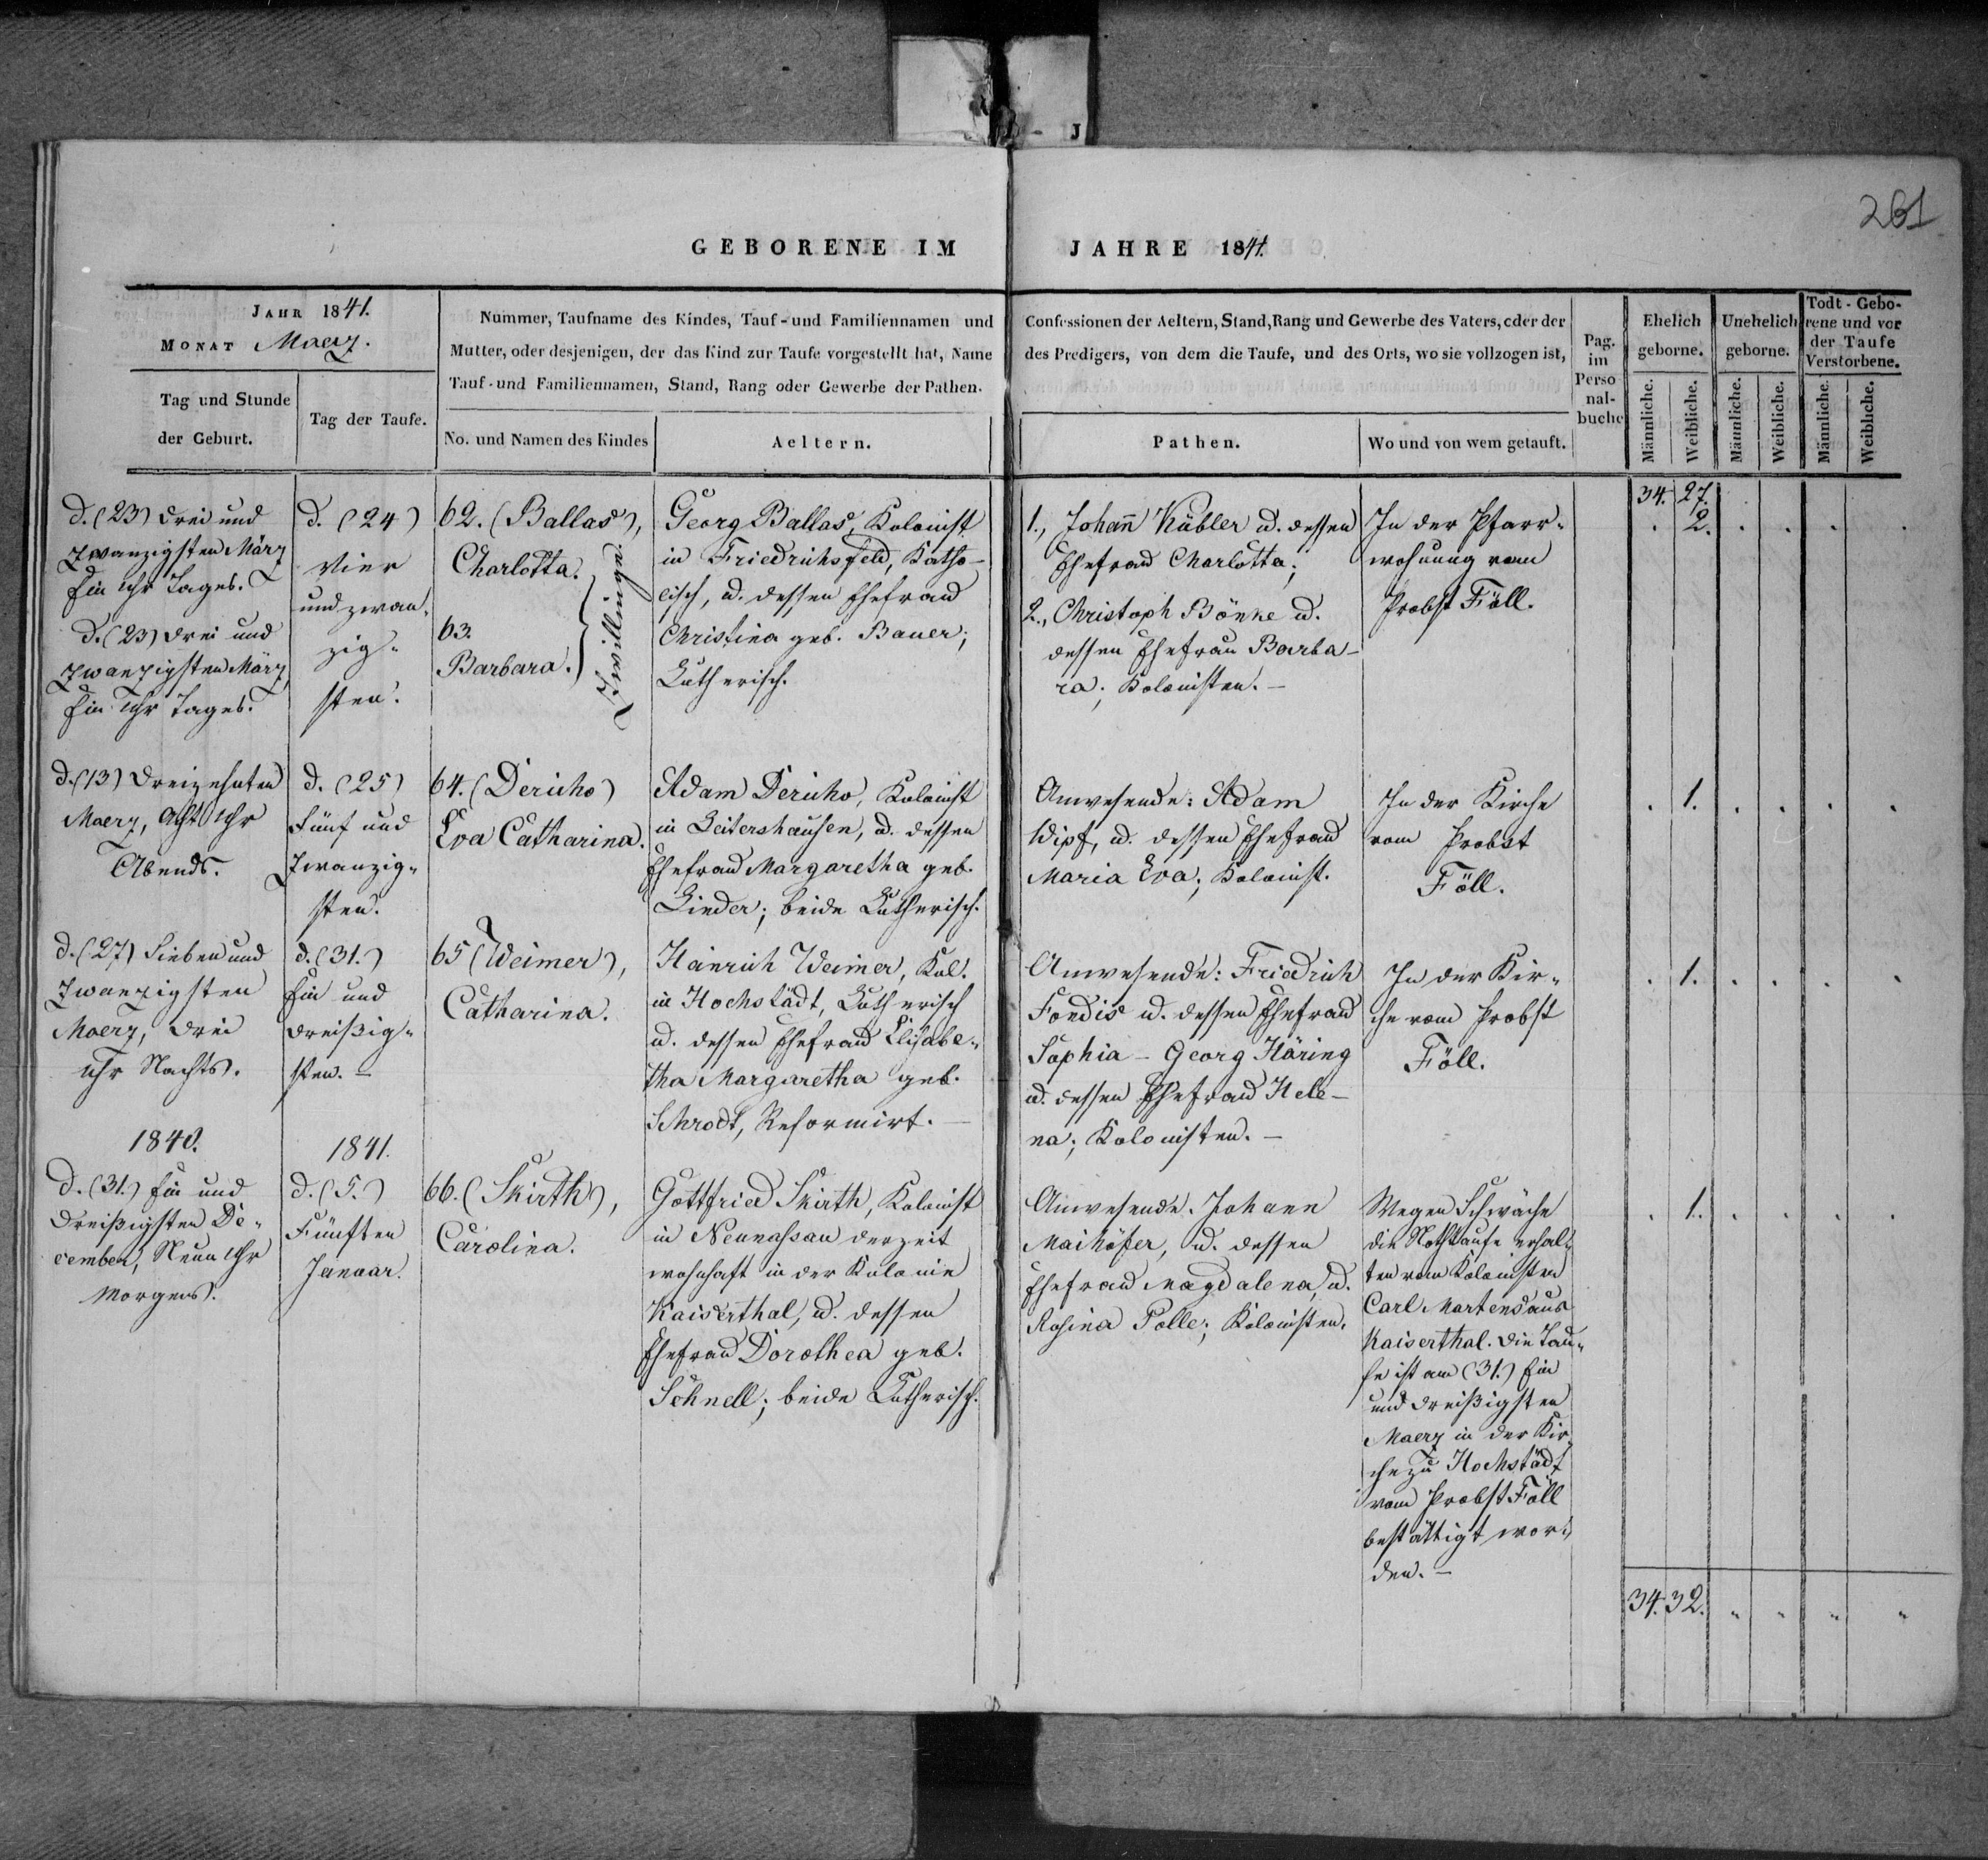 261
GEBORENE IM JAHRE 1841.
JAHR 1841.
MONAT Maerz.
Tag und Stunde
der Geburt.
Tag der Taufe.
Nummer, Taufname des Kindes, Tauf-und Familiennamen und
Mutter, oder desjenigen, der das Kind zur Taufe vorgestellt hat, Name
Tauf-und Familiennamen, Stand, Rang oder Gewerbe der Pathen.
No. und Namen des Kindes
Aeltern.
Confessionen der Aeltern, Stand, Rang und Gewerbe des Vaters, oder der
des Predigers, von dem die Taufe, und des Orts, wo sie vollzogen ist,
Pathen.
Wo und von wem getauft.
Pag.
im
Perso
nal-
buche
Ehelich
geborne.
Unehelich
geborne.
Todt-Gebo-
rene und vor
der Taufe
Verstorbene.
Männliche.
Weibliche.
Männliche.
Weibliche.
Männliche.
Weibliche.
34. 27.
d. (23) drei und
zwanzigsten März
Ein Uhr Tages.
d. (23) drei und
zwanzigsten März,
Ein Uhr Tages.
d. (24)
vier
und zwan-
zig-
sten.
62. (Ballas),
Charlotta.
63.
Barbara.
Zwillinge.
Georg Ballas, Kolonist
in Friedrichsfeld, Katho-
lisch, u. dessen Ehefrau
Christina geb. Bauer;
Lutherisch.
1., Johann Kübler u. dessen
Ehefrau Charlotta;
2., Christoph Bönke u.
dessen Ehefrau Barba-
ra; Kolonisten. –
In der Pfarr-
wohnung vom
Probst Föll.
. 2. . . . .
d. (13) dreizehnten
Maerz, Acht Uhr
Abends.
d. (25)
Fünf und
zwanzig-
sten.
64. (Dericho)
Eva Catharina.
Adam Dericho, Kolonist
in Leitershausen, u. dessen
Ehefrau Margaretha geb.
Linder; beide Lutherisch.
Anwesende: Adam
Wipf, u. dessen Ehefrau
Maria Eva; Kolonist.
In der Kirche
vom Probst
Föll.
. 1. . . . .
d. (27) Sieben und
zwanzigsten
Maerz, drei
Uhr Nachts.
d. (31.)
Ein und
dreißig-
sten. –
65 (Weimer),
Catharina.
Heinrich Weimer, Kol.
in Hochstädt, Lutherisch
u. dessen Ehefrau Elisabe-
tha Margaretha geb.
Schrodt, Reformirt. –
Anwesende: Friedrich
Fondis u. dessen Ehefrau
Sophia – Georg Häring
u. dessen Ehefrau Hele-
na; Kolonisten. –
In der Kir-
che vom Probst
Föll.
. 1. . . . .
1840.
d. (31.) Ein und
dreißigsten De-
cember, Neun Uhr
Morgens.
1841.
d. (5.)
Fünften
Januar.
66. (Skirth),
Carolina.
Gottfried Skirth, Kolonist
in Neunassau derzeit
wohnhaft in der Kolonie
Kaiserthal, u. dessen
Ehefrau Dorothea geb.
Schnell; beide Lutherisch.
Anwesende. Johann
Maihöfer, u. dessen
Ehefrau Magdalena, u.
Rosina Polle; Kolonisten.
Wegen Schwäche
die Nothtaufe erhal-
ten vom Kolonisten
Carl Martens aus
Kaiserthal. Die Tau-
fe ist am (31.) Ein
und dreißigsten
Maerz in der Kir-
che zu Hochstädt
vom Probst Föll
bestättigt wor-
den. –
. 1. . . . .
34. 32. " " " "